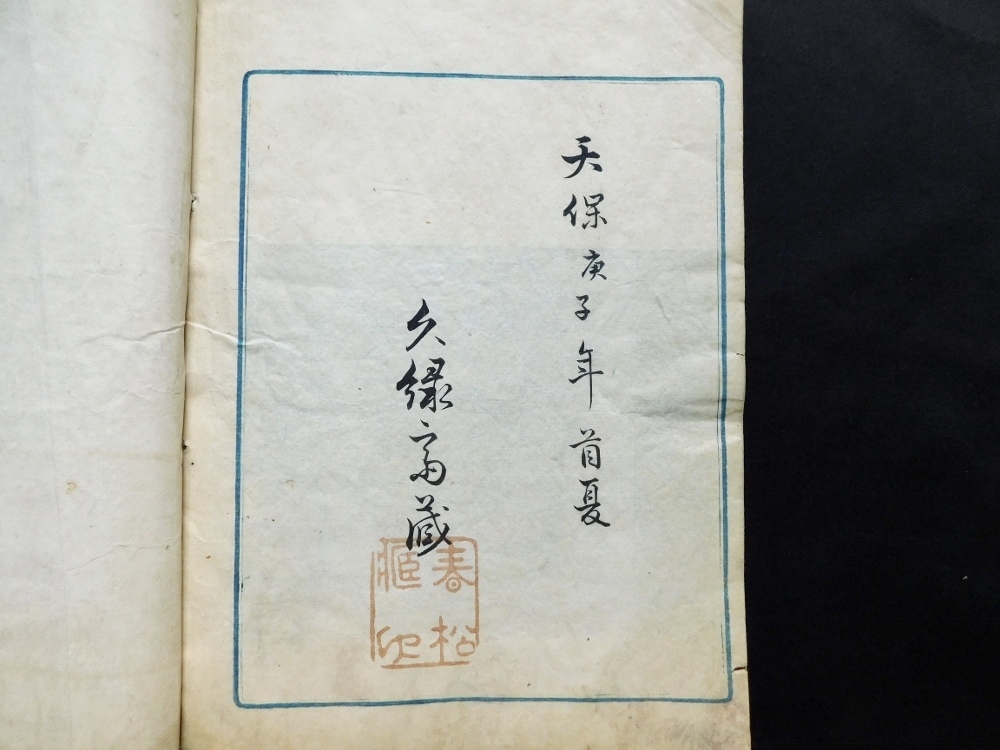 天保庚子年首夏
久緑斎蔵
春松
姬印